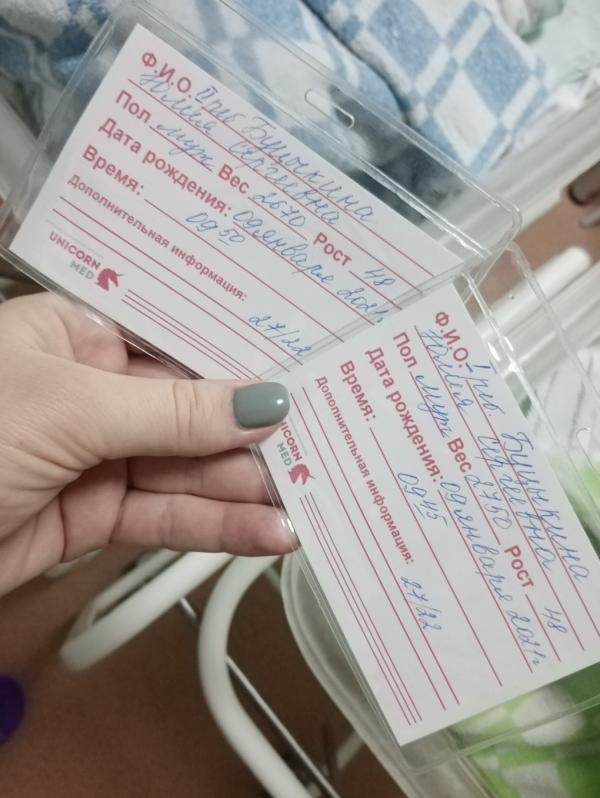 Ф.И.О. II реб Бунькина
Юлия Сергеевна
Пол муж Вес 2670 Рост 48
Дата рождения: 09 января 2021г
Время: 09 50
Дополнительная информация:
27/22
UNICORN
MED
Ф.И.О. I реб Бунькина
Юлия Сергеевна
Пол муж Вес 2750 Рост 48
Дата рождения: 09 января 2021г
Время: 09 45
Дополнительная информация:
27/22
UNICORN
MED